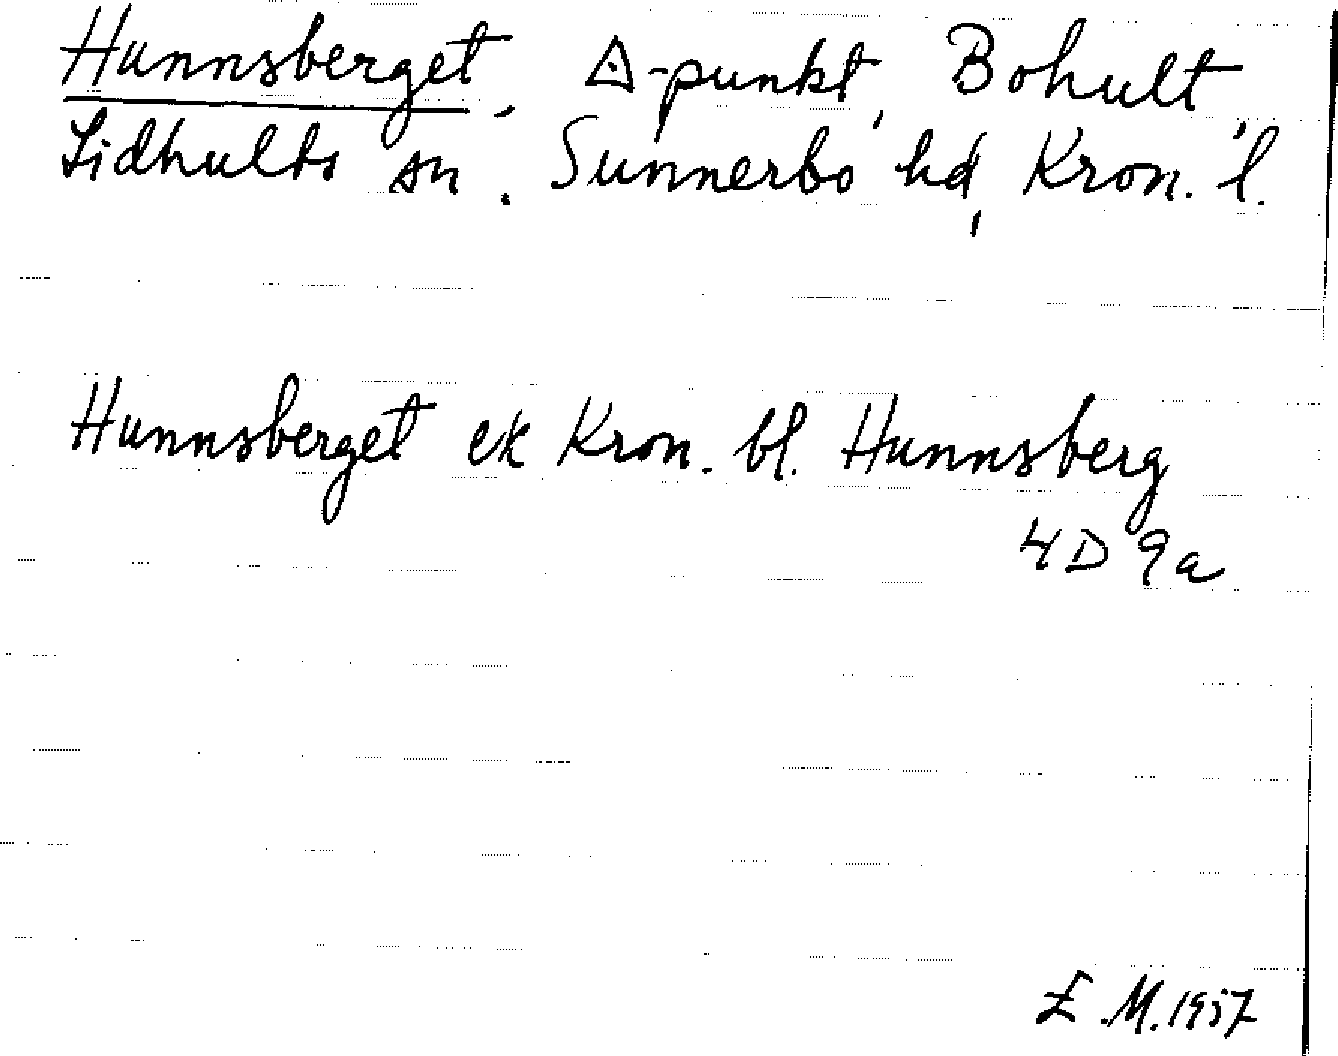 Hunnsberget, △-punkt, Bohult,
Lidhults sn. Sunnerbo hd, Kron. l.
Hunnsberget ek Kron. bl. Hunnsberg
4D 9a
E.M. 1957